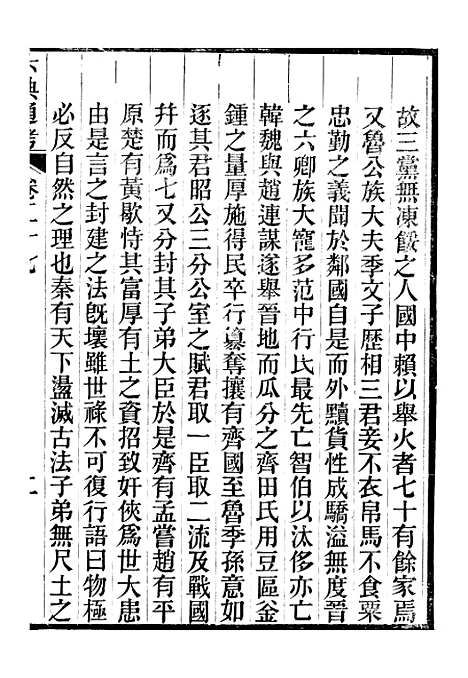 故三黨無凍餒之人國中賴以舉火者七十有餘家焉
又魯公族大夫季文子歷相三君妾不衣帛馬不食粟
忠勤之義聞於鄰國自是而外黷貨性成驕溢無度晉
之六卿族大寵多范中行氏最先亡智伯以汰侈亦亡
韓魏與趙連謀遂舉晉地而瓜分之齊田氏用豆區釜
鍾之量厚施得民卒行簒奪攘有齊國至魯季孫意如
逐其君昭公三分公室之賦君取一臣取二流及戰國
幷而爲七又分封其子弟大臣於是齊有孟嘗趙有平
原楚有黃歇恃其富厚有土之資招致奸俠爲世大患
由是言之封建之法旣壞雖世祿不可復行語曰物極
必反自然之理也秦有天下盪滅古法子弟無尺土之
六典通考 卷二十七 二